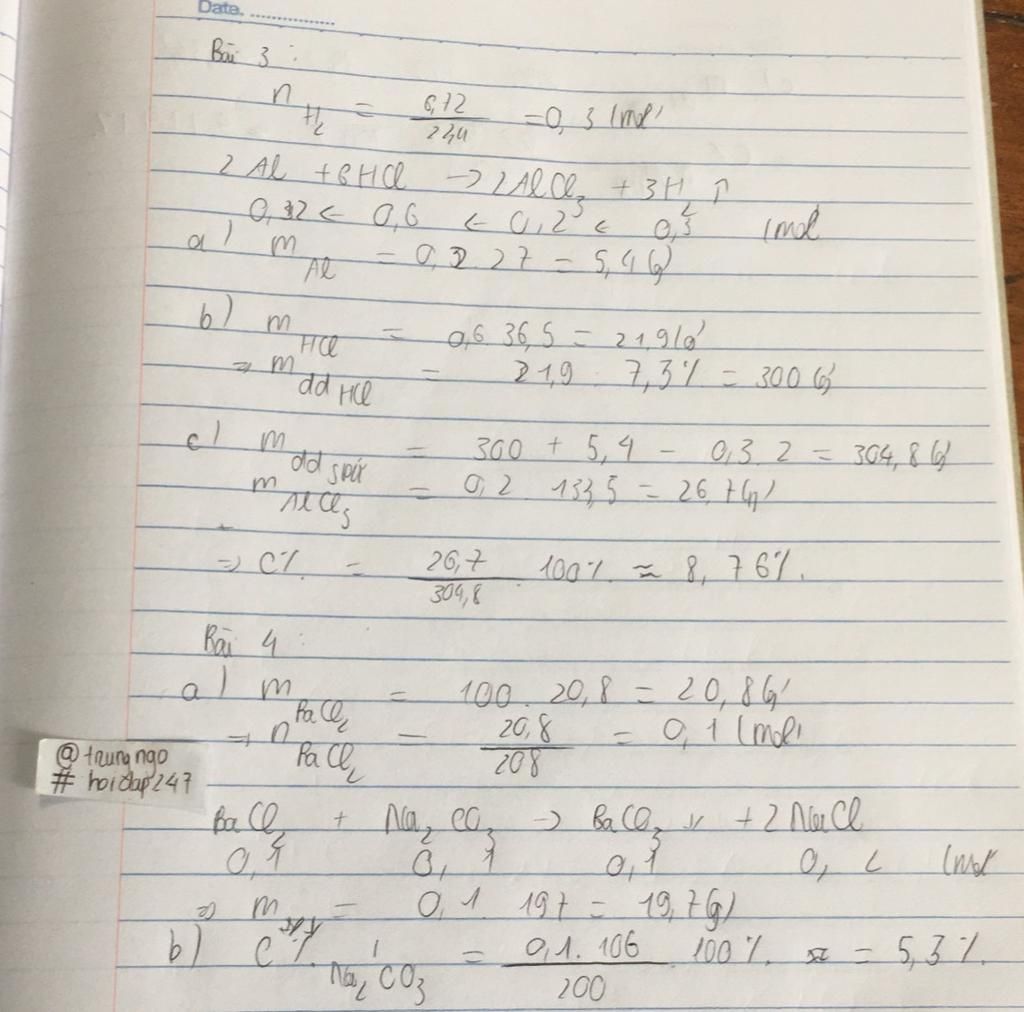 Date. ..............
Bài 3 :
n H₂ = 6,72/22,4 = 0,3 (mol)
2Al + 6HCl → 2AlCl₃ + 3H₂ ↑
0,2 ← 0,6 ← 0,2 ← 0,3 (mol
a) m Al = 0,2 . 27 = 5,4 (g)
b) m HCl = 0,6 . 36,5 = 21,9 (g)
⇒ m dd HCl = 21,9 : 7,3% = 300 (g)
c) m dd spứ = 300 + 5,4 - 0,3 . 2 = 304,8 (g)
m AlCl₃ = 0,2 . 133,5 = 26,7 (g)
⇒ C% = 26,7/304,8 . 100% ≈ 8,76%.
Bài 4 :
a) m BaCl₂ = 100 . 20,8 = 20,8 (g)
⇒ n BaCl₂ = 20,8/208 = 0,1 (mol)
@trungngo
# hoidap247
BaCl₂ + Na₂CO₃ → BaCO₃ ↓ + 2NaCl
0,1 0,1 0,1 0,2 (mol
⇒ m = 0,1 . 197 = 19,7 (g)
b) C% Na₂CO₃ = 0,1.106/200 . 100% = 5,3%.